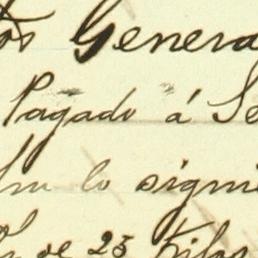 tos Genera
Pagado á Se
lo signi
de 25 Kilos